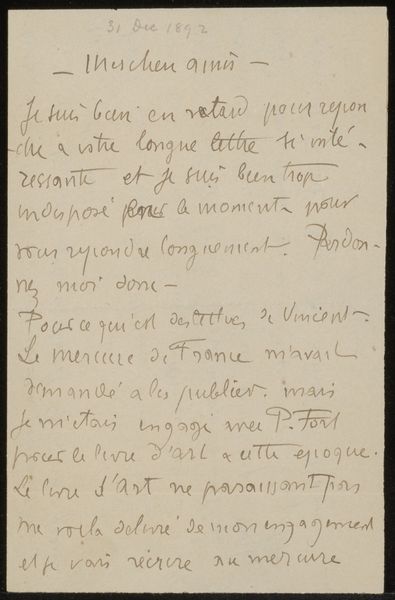 31 Dec 1892
— Mon cher amis —
Je suis bien en retard pour repon
dre a votre longue lettre si inté-
ressante et je suis bien trop
indisposé pour le moment pour
vous repondre longuement. Pardon-
nez moi donc —
Pour ce qui est des lettres de Vincent.
Le mercure de France m'avait
demandé a les publier. mais
je m'etais engagé avec P. Fort
pour le livre d'art a cette epoque.
Le livre d'Art ne paraissant pas
me voila delivré de mon engagement
et je vais récrire au mercure